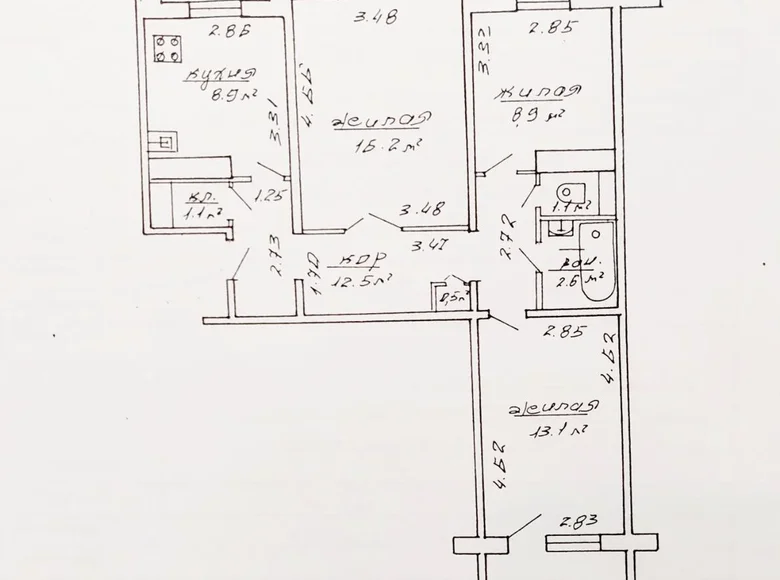 2.86
3.48
2.85
3.32
кухня
8.9 м²
4.55
3.31
жилая
15.2 м²
жилая
8,9 м²
кл.
1.1 м²
1.25
3.48
3.47
2.73
1.70
кор
12.5 м²
0,5 м²
2.72
1.1 м²
ван.
2.6 м²
2.85
4.52
жилая
13.1 м²
4.52
2.83